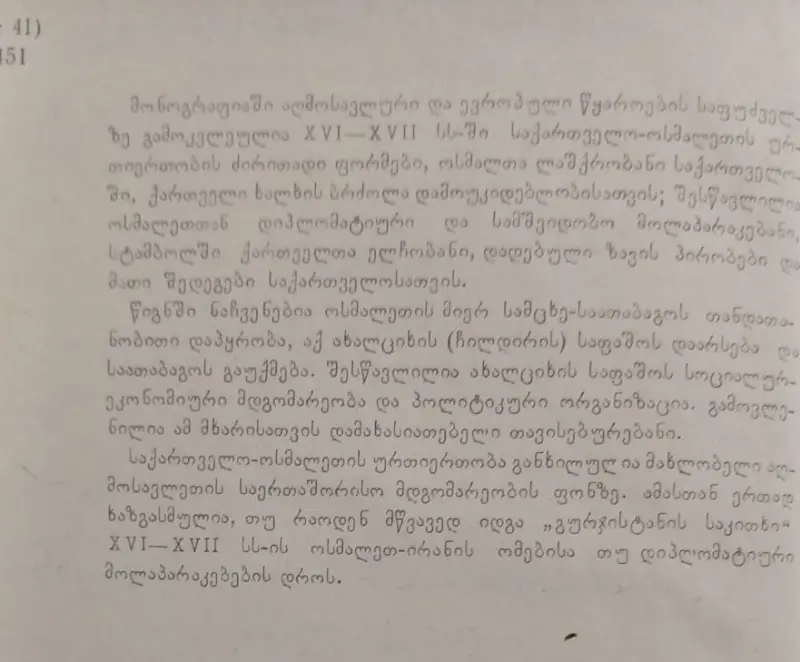 41)
451
მონოგრაფიაში აღმოსავლური და ევროპული წყაროების საფუძველ-
ზე გამოკვლეულია XVI—XVII სს-ში საქართველო-ოსმალეთის ურ-
თიერთობის ძირითადი ფორმები, ოსმალთა ლაშქრობანი საქართველო-
ში, ქართველი ხალხის ბრძოლა დამოუკიდებლობისათვის; შესწავლილია
ოსმალეთთან დიპლომატიური და სამშვიდობო მოლაპარაკებანი,
სტამბოლში ქართველთა ელჩობანი, დადებული ზავის პირობები და
მათი შედეგები საქართველოსათვის.
წიგნში ნაჩვენებია ოსმალეთის მიერ სამცხე-საათაბაგოს თანდათა-
ნობითი დაპყრობა, აქ ახალციხის (ჩილდირის) საფაშოს დაარსება და
საათაბაგოს გაუქმება. შესწავლილია ახალციხის საფაშოს სოციალურ-
ეკონომიური მდგომარეობა და პოლიტიკური ორგანიზაცია. გამოვლე-
ნილია ამ მხარისათვის დამახასიათებელი თავისებურებანი.
საქართველო-ოსმალეთის ურთიერთობა განხილულია მახლობელი აღ-
მოსავლეთის საერთაშორისო მდგომარეობის ფონზე. ამასთან ერთად
ხაზგასმულია, თუ რაოდენ მწვავედ იდგა „გურჯისტანის საკითხი“
XVI—XVII სს-ის ოსმალეთ-ირანის ომებისა თუ დიპლომატიური
მოლაპარაკებების დროს.